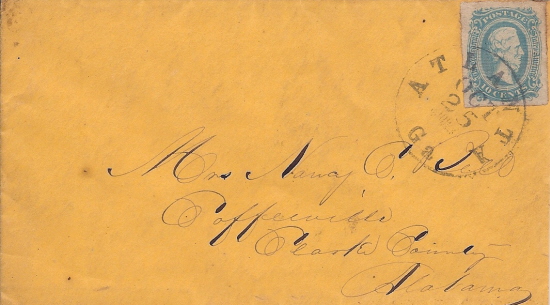 POSTAGE
TEN CENTS
ATLANTA
OCT
25
Ga
Mrs Nancy C.
Coffeeville
Clark County
Alabama